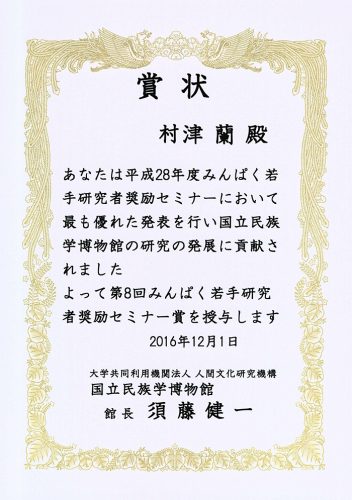 賞状
村津 蘭 殿
あなたは平成28年度みんぱく若
手研究者奨励セミナーにおいて
最も優れた発表を行い国立民族
学博物館の研究の発展に貢献さ
れました
よって第8回みんぱく若手研究
者奨励セミナー賞を授与します
2016年12月1日
大学共同利用機関法人 人間文化研究機構
国立民族学博物館
館長 須藤健一